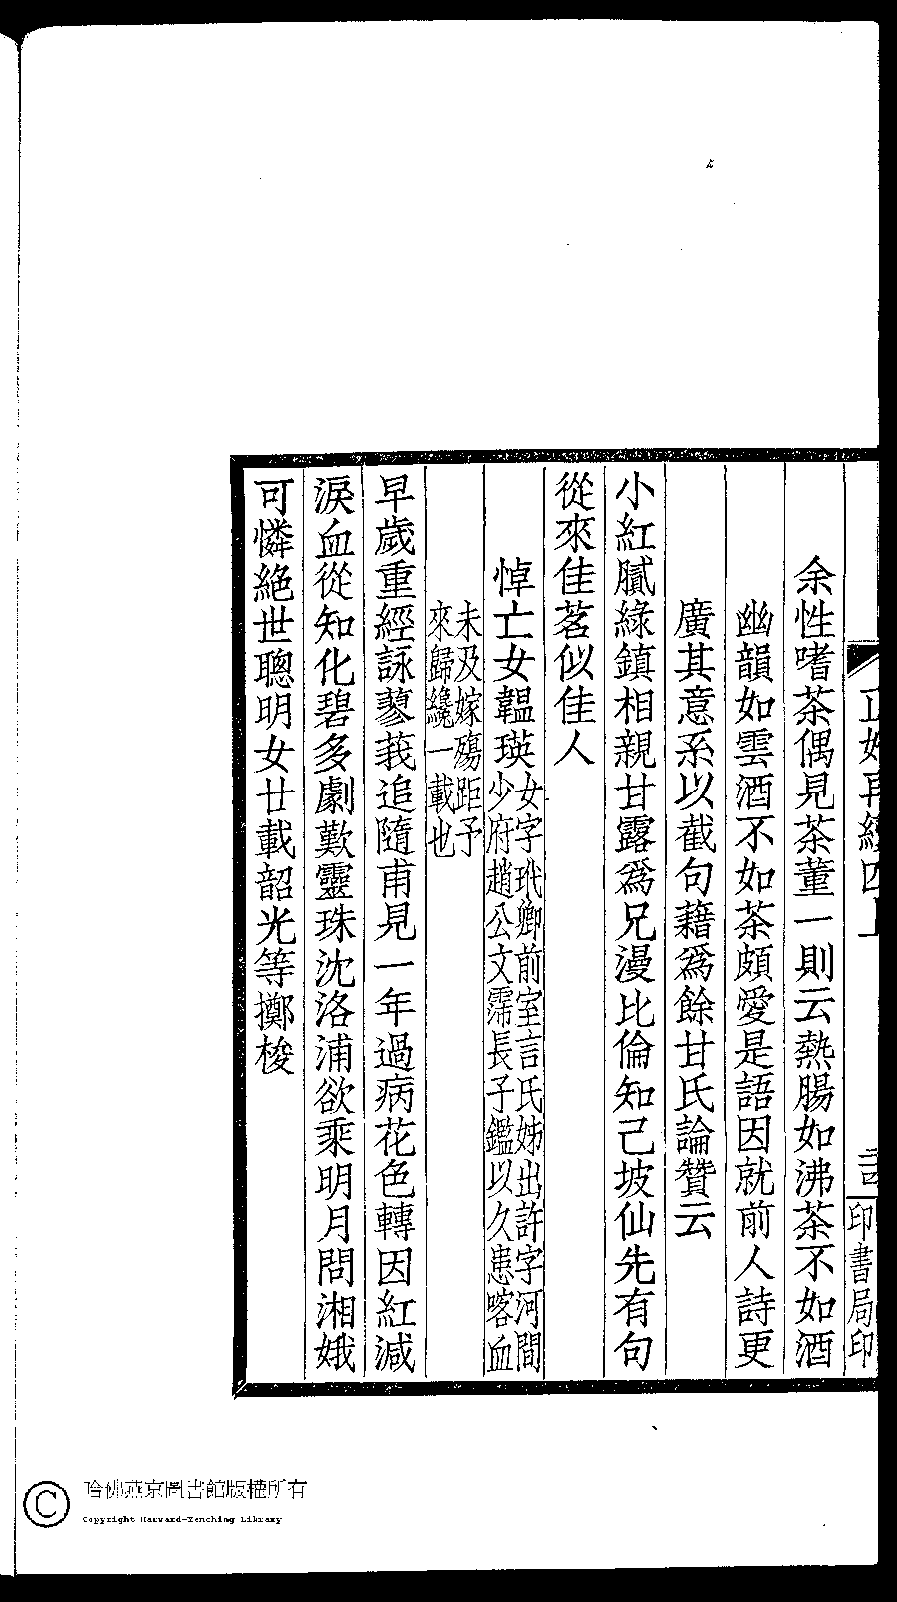 余性嗜茶偶見茶董一則云熱腸如沸茶不如酒
幽韻如雲酒不如茶頗愛是語因就前人詩更
廣其意系以截句藉爲餘甘氏論贊云
小紅膩綠鎮相親甘露爲兄漫比倫知己坡仙先有句
從來佳茗似佳人
悼亡女韞瑛女字玳卿前室言氏姊出許字河間
少府趙公文霈長子鑑以久患喀血
未及嫁殤距予
來歸纔一載也
早歲重經詠蓼莪追隨甫見一年過病花色轉因紅減
淚血從知化碧多劇歎靈珠沈洛浦欲乘明月問湘娥
可憐絕世聰明女廿載韶光等擲梭
印書局印
哈佛燕京圖書館版權所有
Copyright Harvard-Yenching Library